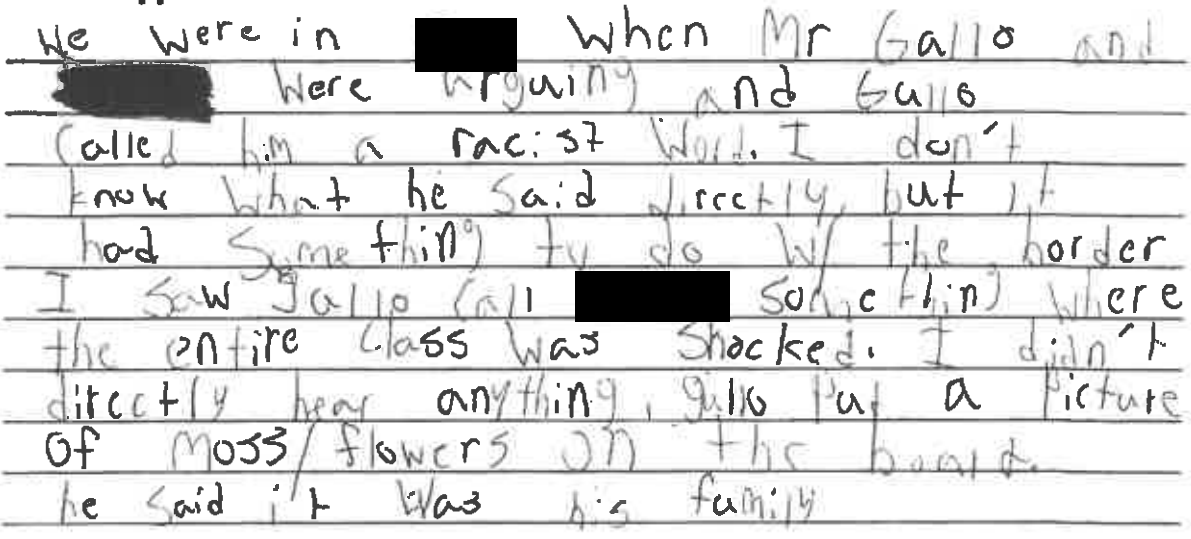 We were in when Mr Gallo and
were arguing and Gallo
called him a racist word. I don't
know what he said directly, but it
had something to do w/ the border
I saw gallo call something where
the entire class was shocked. I didn't
directly hear anything, gallo put a picture
of moss/flowers on the board.
he said it was his family